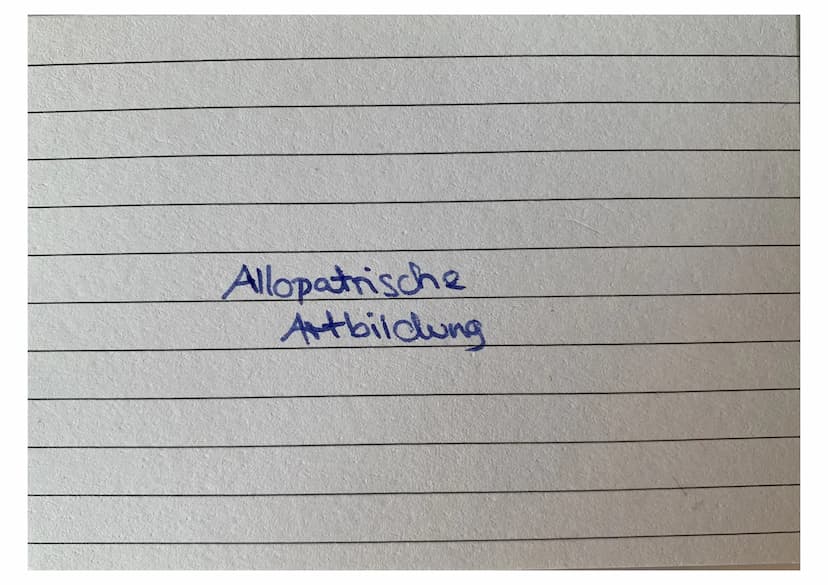 Allopatrische
Artbildung